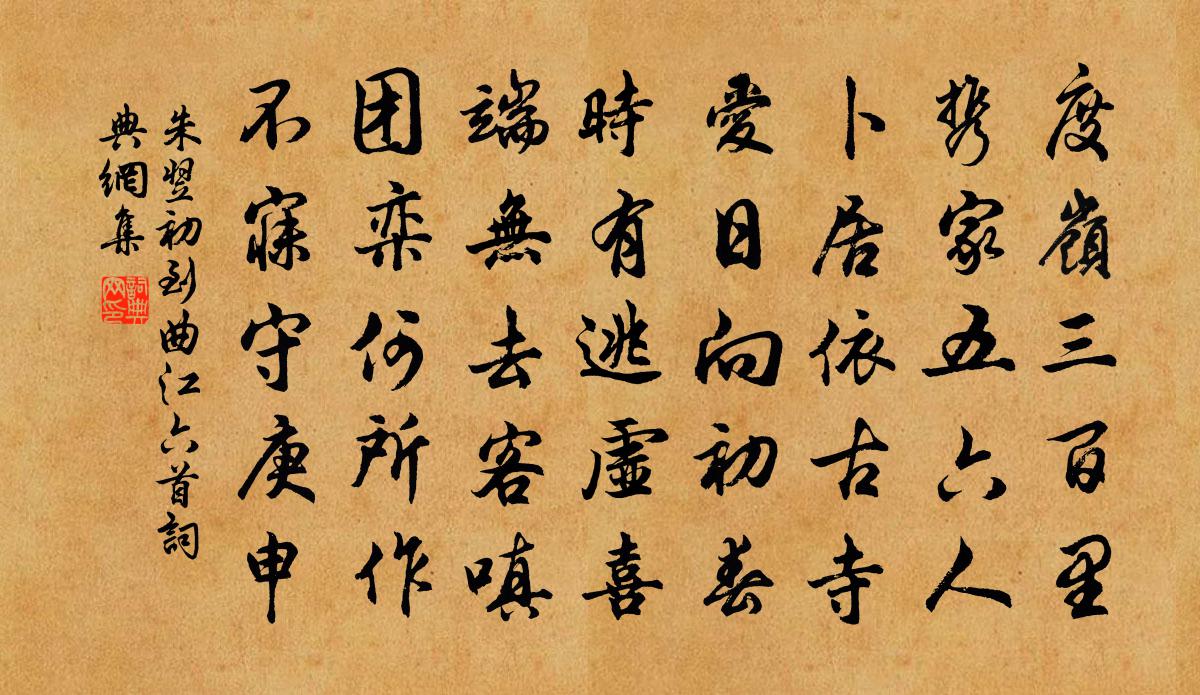 度嶺三百里
携家五六人
卜居依古寺
愛日向初春
時有逃虛喜
端無去客嗔
团栾何所作
不寐守庚申
朱翌初到曲江六首詞
典網集
詞典網印